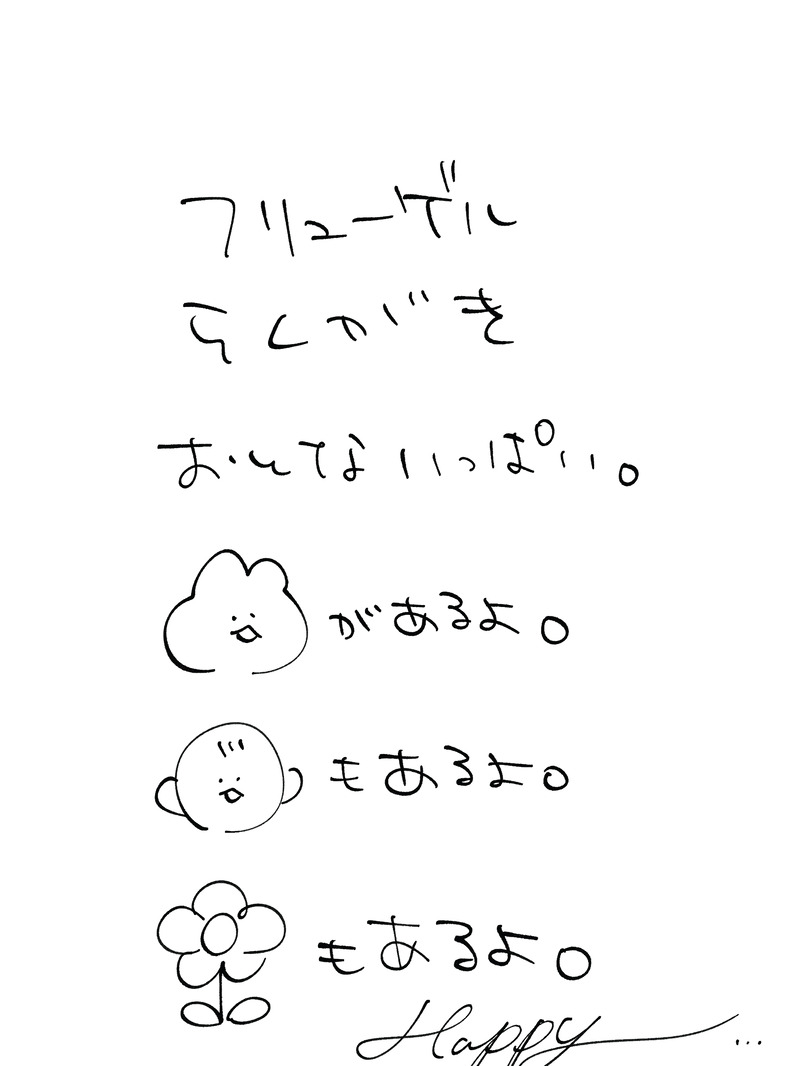 フリューゲル
らくがき
おしてないっぱい。
があるよ。
もあるよ。
もあるよ。
Happy...